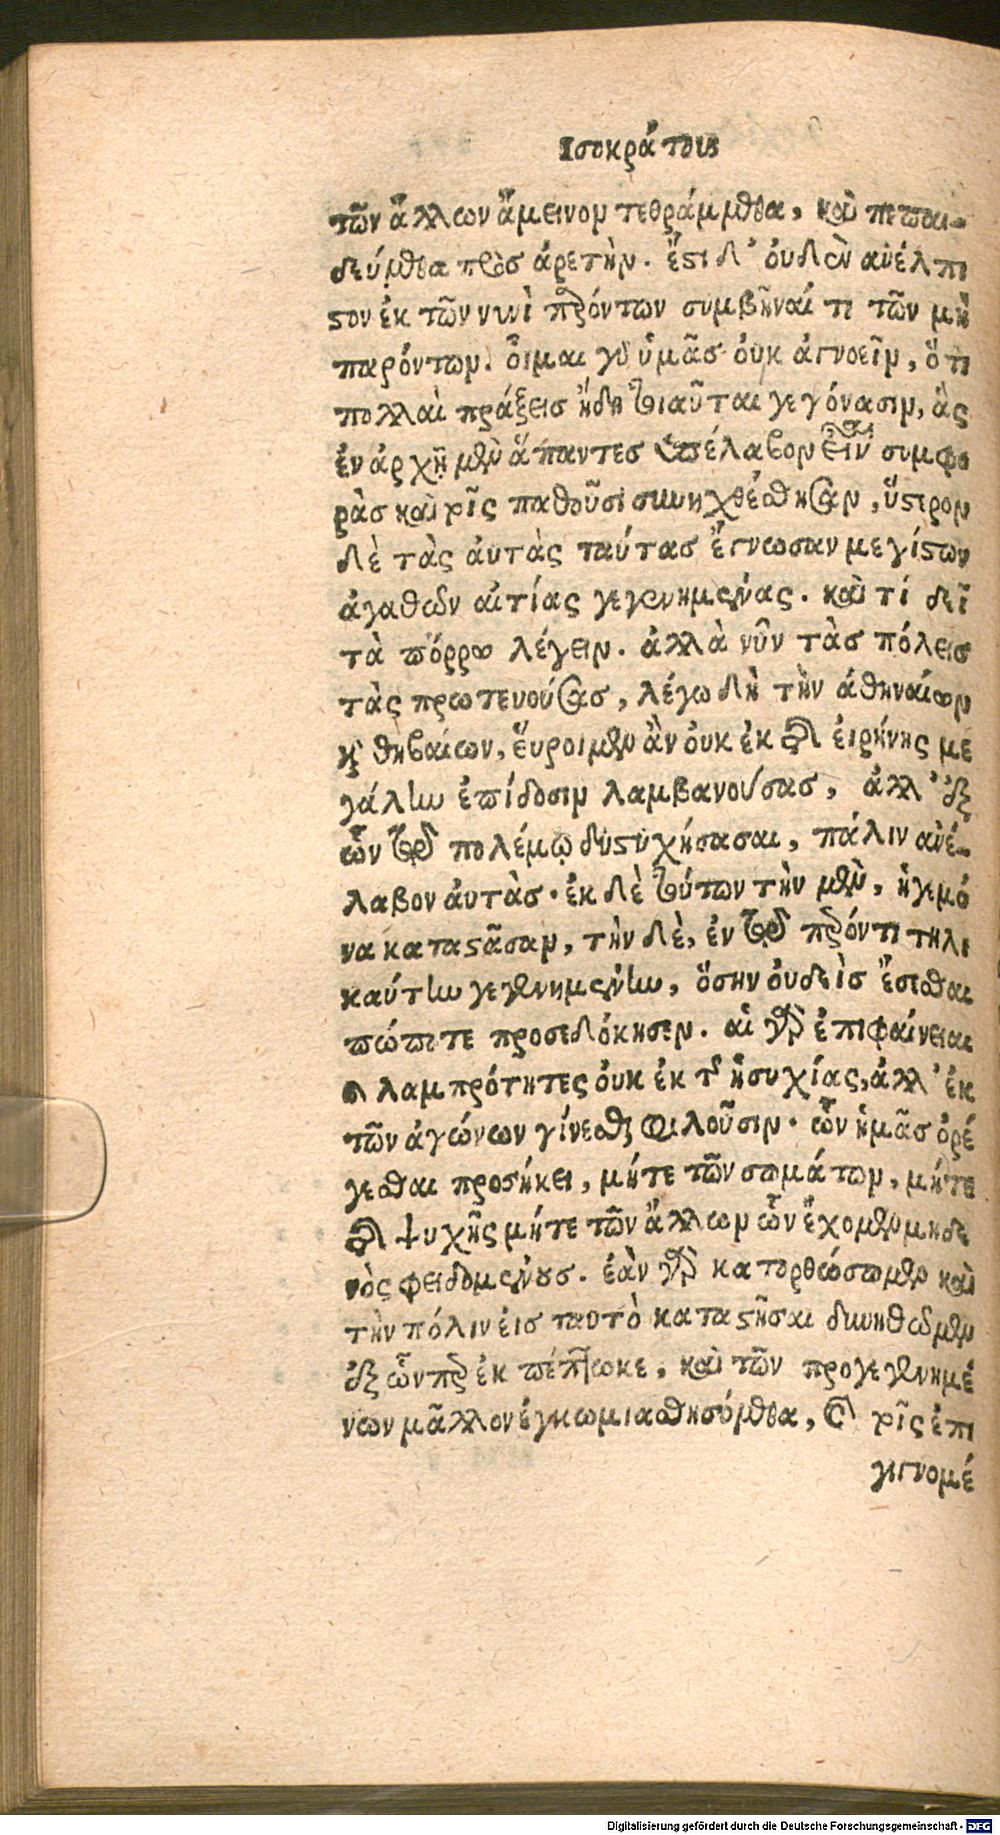 Ισοκράτους
τῶν ἄλλων ἄμεινον τεθράμμεθα, καὶ πεπαι-
δεύμεθα πρὸς ἀρετήν. ἔστι δ᾽ οὐδὲν ἀνέλπι
στον ἐκ τῶν νυνὶ παρόντων συμβῆναί τι τῶν μὴ
παρόντων. οἶμαι γὰρ ὑμᾶς οὐκ ἀγνοεῖν, ὅτι
πολλαὶ πράξεις ἤδη τοιαῦται γεγόνασιν, ἃς
ἐν ἀρχῇ μὲν ἅπαντες ὑπέλαβον εἶναι συμφο
ρὰς καὶ τοῖς παθοῦσι συνηχθέσθησαν, ὕστερον
δὲ τὰς αὐτὰς ταύτας ἔγνωσαν μεγίστων
ἀγαθῶν αἰτίας γεγενημένας. καὶ τί δεῖ
τὰ πόρρω λέγειν. ἀλλὰ νῦν τὰς πόλεις
τὰς πρωτευούσας, λέγω δὴ τὴν ἀθηναίων
καὶ θηβαίων, εὕροιμεν ἂν οὐκ ἐκ τῆς εἰρήνης με
γάλην ἐπίδοσιν λαμβανούσας, ἀλλ᾽ ἐξ
ὧν τῷ πολέμῳ δυστυχήσασαι, πάλιν ἀνέ-
λαβον αὑτάς. ἐκ δὲ τούτων τὴν μὲν, ἡγεμό
να καταστᾶσαν, τὴν δὲ, ἐν τῷ παρόντι τηλι
καύτην γεγενημένην, ὅσην οὐδεὶς ἔσεσθαι
πώποτε προσεδόκησεν. αἱ γὰρ ἐπιφαίνειαι
καὶ λαμπρότητες οὐκ ἐκ τῆς ἡσυχίας, ἀλλ᾽ ἐκ
τῶν ἀγώνων γίνεσθαι φιλοῦσιν. ὧν ἡμᾶς ὀρέ
γεσθαι προσήκει, μήτε τῶν σωμάτων, μήτε
τῆς ψυχῆς μήτε τῶν ἄλλων ὧν ἔχομεν μηδε
νὸς φειδομένους. ἐὰν γὰρ κατορθώσωμεν καὶ
τὴν πόλιν εἰς ταυτὸ καταστῆσαι δυνηθῶμεν
ἐξ ὧνπερ ἐκπέπτωκε, καὶ τῶν προγεγενημέ
νων μᾶλλον ἐγκωμιασθησόμεθα, καὶ τοῖς ἐπι
γιγνομέ
Digitalisierung gefördert durch die Deutsche Forschungsgemeinschaft - DFG